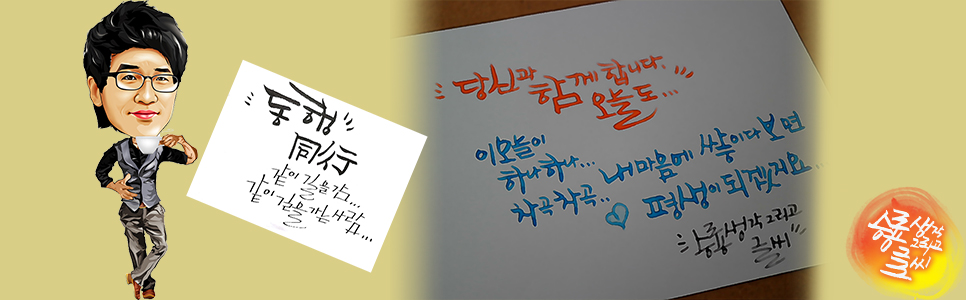 "동행"
同行
같이 길을 감...
같이 길을 가는 사람...
당신과 함께 합니다.
오늘도...
이 오늘이
하나하나... 내 마음에 쌓이다 보면
차곡차곡.. ♡ 평생이 되겠지요...
승룡 생각 그리고
글씨
승룡 생각
그리고
글씨